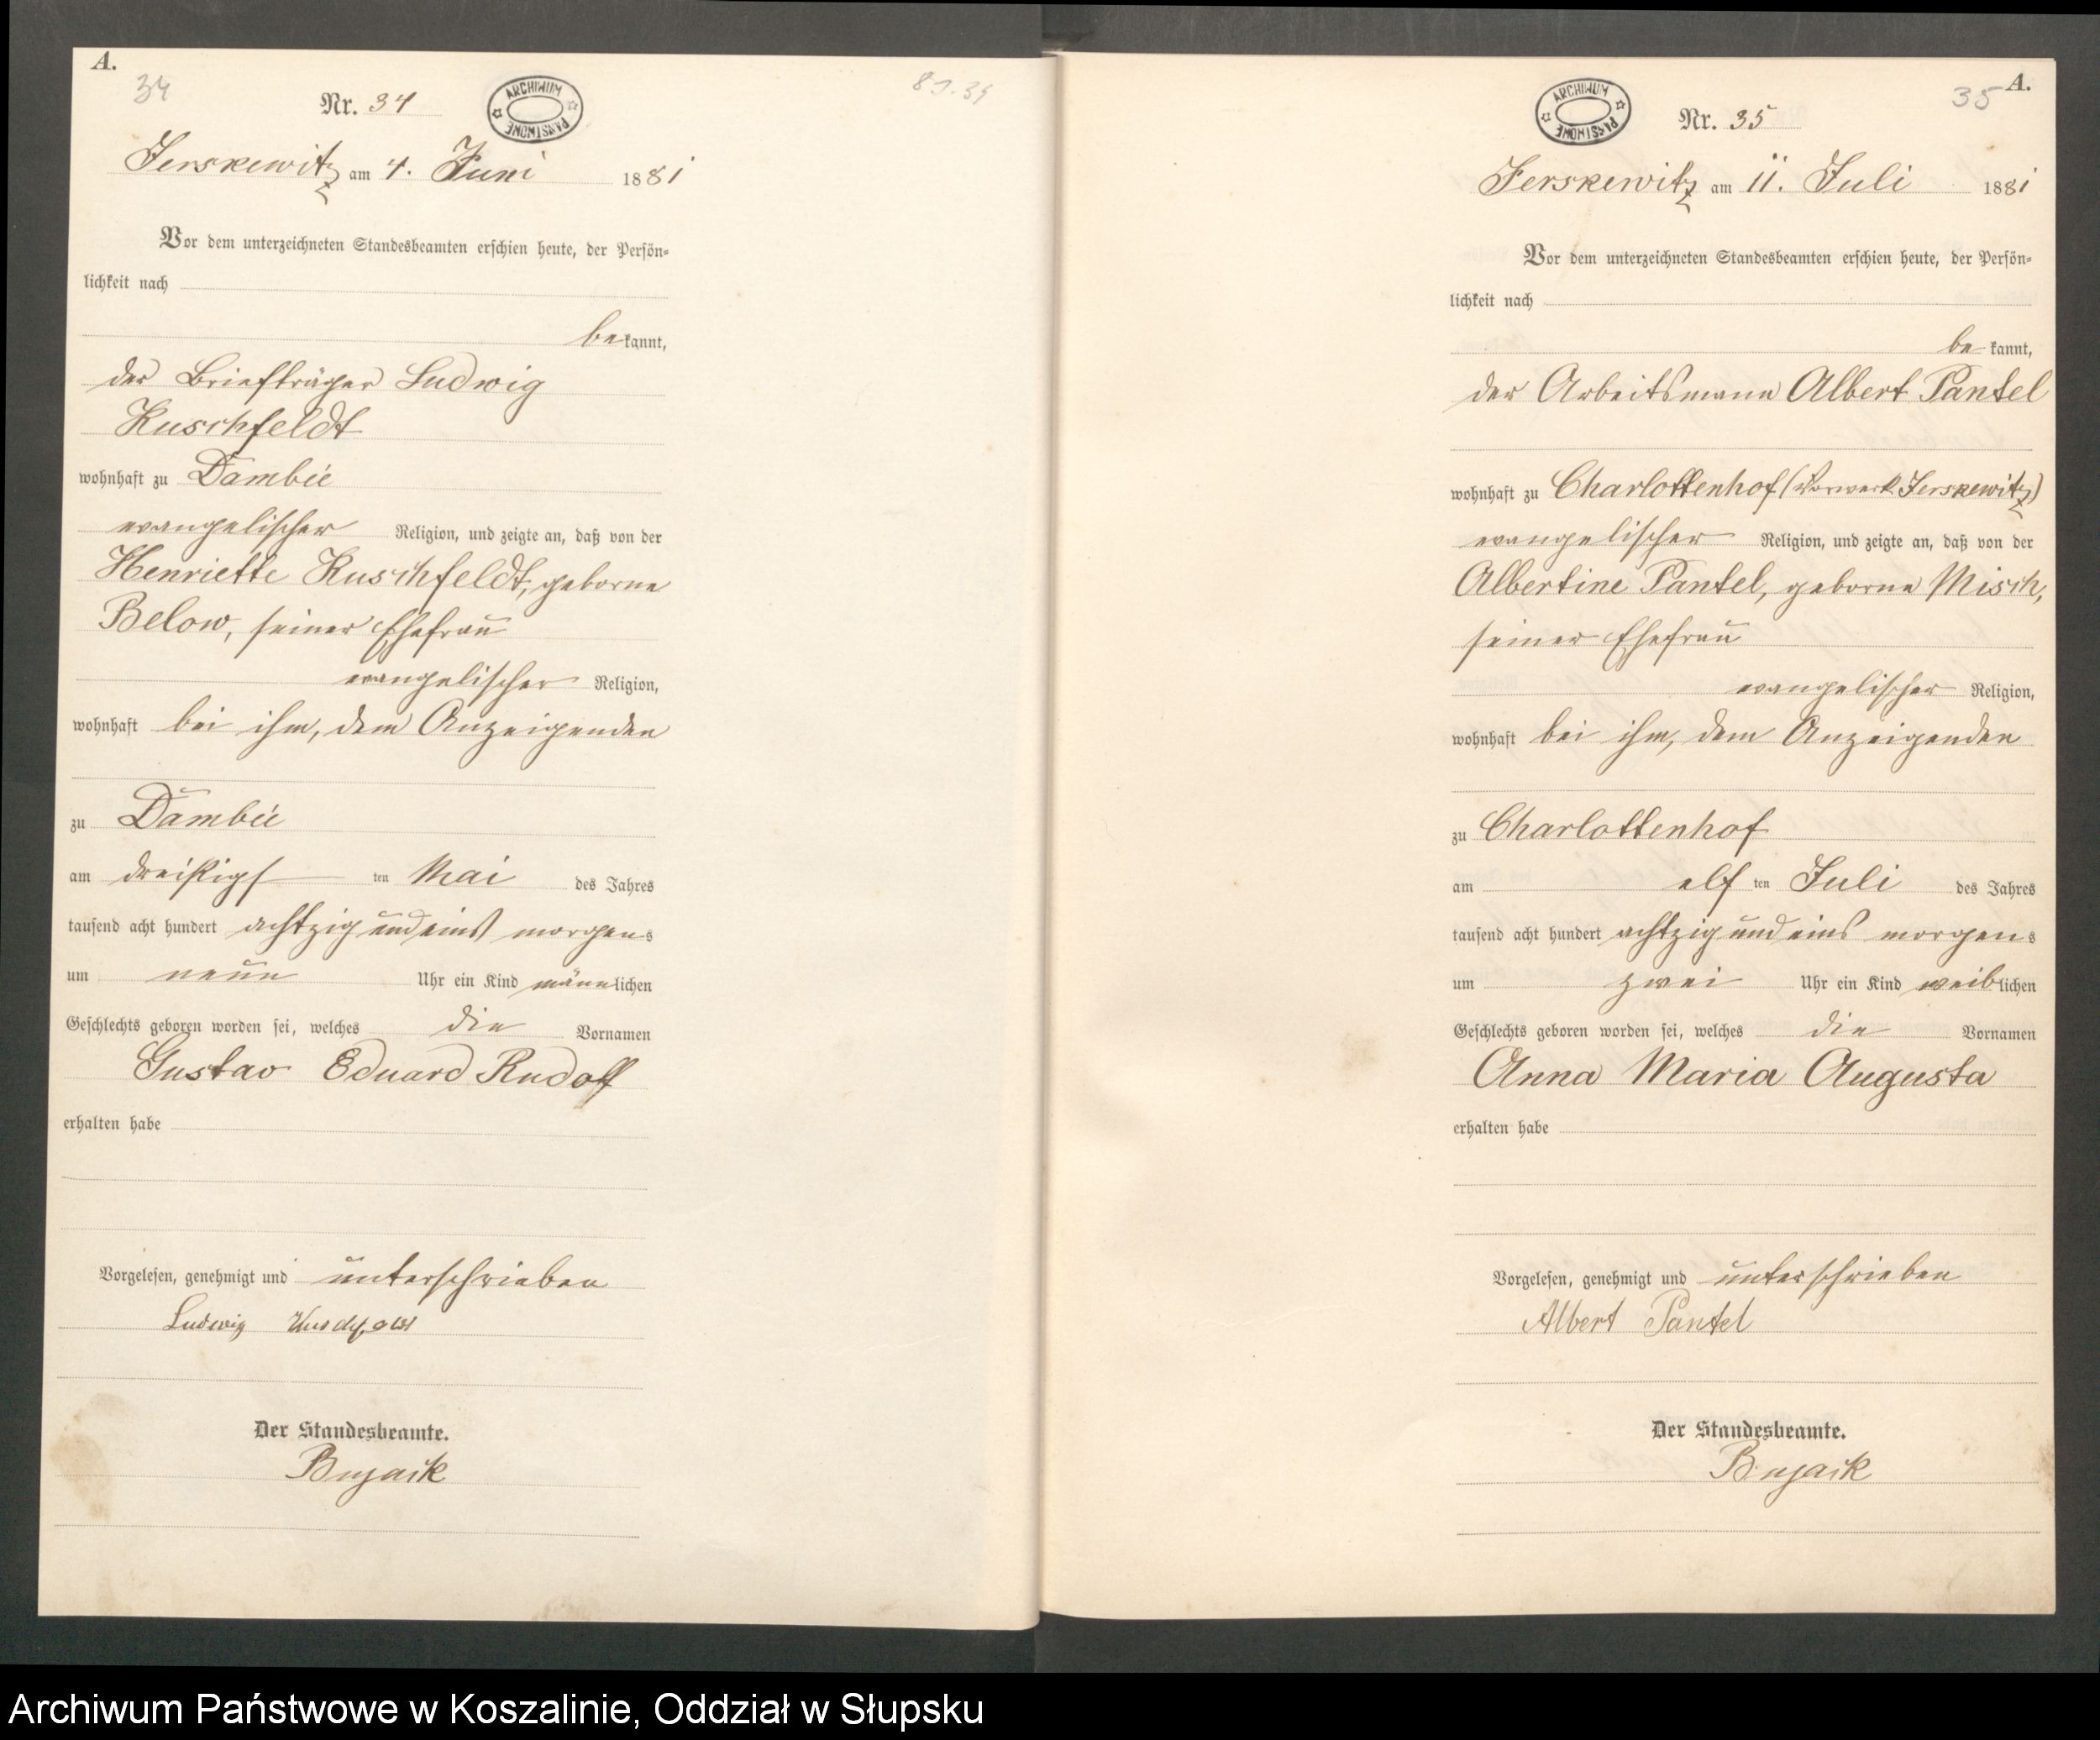 A.
34
Nr. 34
ARCHIWUM PAŃSTWOWE
81.34
Jerskewitz am 4. Juni 1881
Vor dem unterzeichneten Standesbeamten erschien heute, der Persön-
lichkeit nach
bekannt,
der Briefträger Ludwig
Kuschfeldt
wohnhaft zu
evangelischer Religion, und zeigte an, daß von der
Henriette Kuschfeldt, geborne
Below, seiner Ehefrau
evangelischer Religion,
wohnhaft bei ihm, dem Anzeigenden
zu
am dreißigst ten Mai des Jahres
tausend acht hundert achtzig und eins morgens
um neun Uhr ein Kind männlichen
Geschlechts geboren worden sei, welches die Vornamen
Gustav Eduard Rudolf
erhalten habe
Vorgelesen, genehmigt und unterschrieben
Ludwig
Der Standesbeamte.
A.
35
Nr. 35
ARCHIWUM PAŃSTWOWE
Jerskewitz am 11. Juli 1881
Vor dem unterzeichneten Standesbeamten erschien heute, der Persön-
lichkeit nach
be kannt,
der Arbeitsmann Albert Pantel
wohnhaft zu Charlottenhof (Vorwerk Jerskewitz)
evangelischer Religion, und zeigte an, daß von der
Albertine Pantel, geborne Misch,
seiner Ehefrau
evangelischer Religion,
wohnhaft bei ihm, dem Anzeigenden
zu Charlottenhof
am elf ten Juli des Jahres
tausend acht hundert achtzig und eins morgens
um zwei Uhr ein Kind weiblichen
Geschlechts geboren worden sei, welches die Vornamen
Anna Maria Augusta
erhalten habe
Vorgelesen, genehmigt und unterschrieben
Albert Pantel
Der Standesbeamte.
Archiwum Państwowe w Koszalinie, Oddział w Słupsku